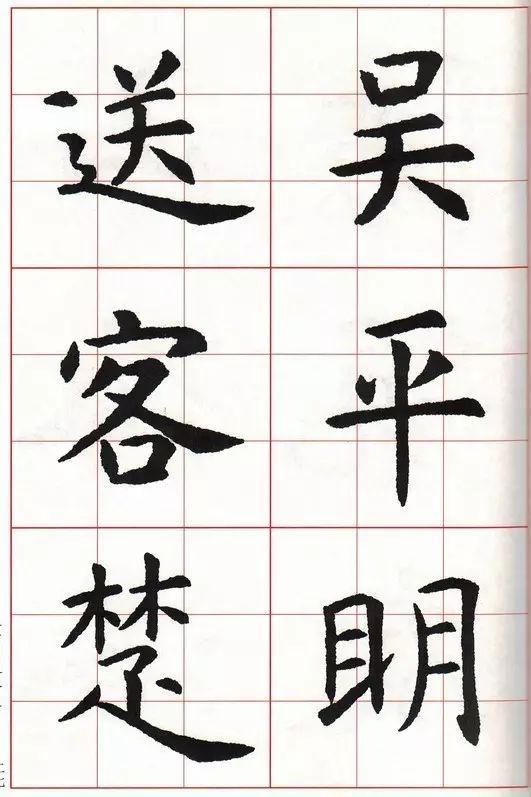 吴平明
送客楚